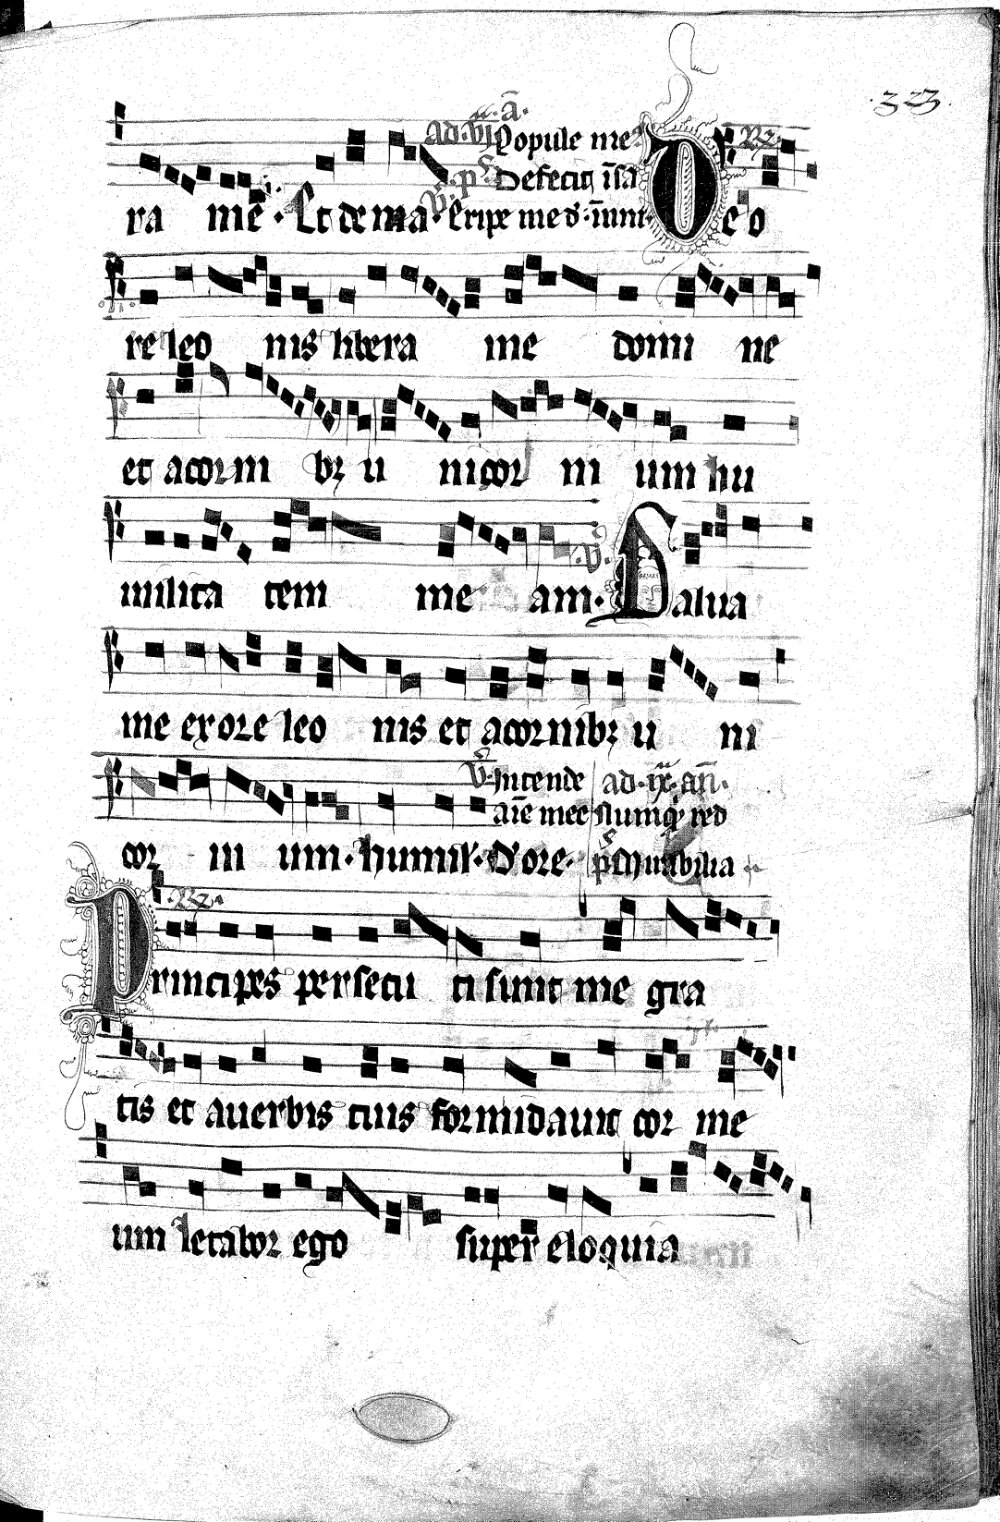 323
ad · vi · a̅ · Popule me9 R̲z̲
p̅s̅ Defecit i̅sa̅
ra me · Et de ma · ℣ · Eripe me d̓ · i̅imi · De o
re leo nis libera me domi ne
et a cor ni bꝫ u ni cor ni um hu
milita tem me am · ℣ · Salua
me ex ore leo nis et a cornibꝫ u ni
℣ · Intende ad · ix · an̅ ·
ai̅e mee Numqͥ red
cor ni um · humil̓ · D̓ ore · p̅s̅ Mirabilia
Rꝫ ·
Principes persecu ti sunt me gra
tis et a verbis tuis formidauit cor me
um letabor ego super eloquia